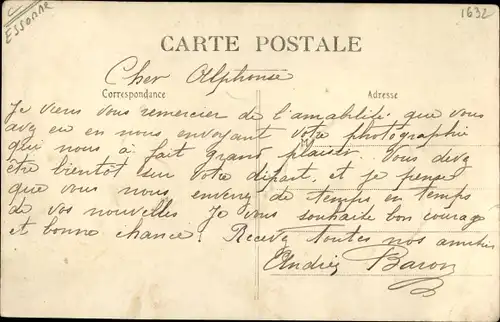 Essonne
1632
CARTE POSTALE
Cher Alphonse
Correspondance
Adresse
Je viens vous remercier de l'amabilité que vous
avez eu en nous envoyant votre photographie
qui nous à fait grand plaisir. Vous devez
être bientôt sur votre départ, et je pense
que vous nous enverez de temps en temps
de vos nouvelles. Je vous souhaite bon courage
et bonne chance. Recevez toutes nos amitiés
Baron